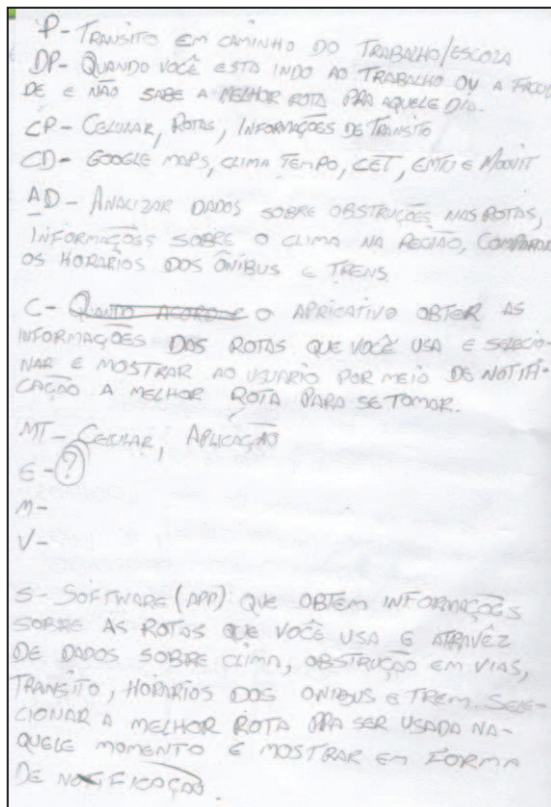 P- TRANSITO EM CAMINHO DO TRABALHO/ESCOLA
DP- QUANDO VOCÊ ESTA INDO AO TRABALHO OU A FACUL
DE E NÃO SABE A MELHOR ROTA PRA AQUELE DIA.
CP- CELULAR, ROTAS, INFORMAÇÕES DE TRANSITO
CD- GOOGLE MAPS, CLIMA TEMPO, CET, EMTU E MOOVIT
AD- ANALIZAR DADOS SOBRE OBSTRUÇÕES NAS ROTAS,
INFORMAÇÕES SOBRE O CLIMA NA REGIÃO, COMPARAR
OS HORARIOS DOS ÔNIBUS E TRENS.
C- QUANTO O APRICATIVO OBTER AS
INFORMAÇÕES DAS ROTAS QUE VOCÊ USA E SELECIO-
NAR E MOSTRAR AO USUARIO POR MEIO DE NOTIFI-
CAÇÃO A MELHOR ROTA PARA SE TOMAR.
MT- CELULAR, APLICAÇÃO
E- ?
M-
V-
S- SOFTWARE (APP) QUE OBTEM INFORMAÇÕES
SOBRE AS ROTAS QUE VOCÊ USA E ATRAVÊZ
DE DADOS SOBRE CLIMA, OBSTRUÇÃO EM VIAS,
TRANSITO, HORARIOS DOS ONIBUS E TREM. SELE-
CIONAR A MELHOR ROTA PRA SER USADA NA-
QUELE MOMENTO E MOSTRAR EM FORMA
DE NOTIFICAÇÃO.